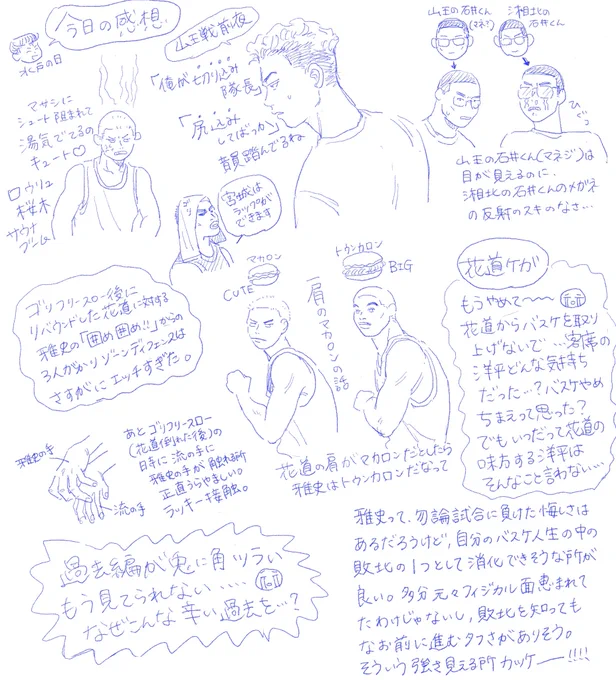 今日の感想
水戸の日
マサシに
シュート阻まれて
湯気でてるの
キュート♡
ロウリュ
桜木
サウナ
ブーム
山王戦前夜
「俺が切り込み
隊長」
「尻込み
してばっか」
韻踏んでるね
ゴリ
宮城は
ラップが
できます
山王の石井くん
(マネ?)
湘北の
石井くん
ひぐっ
山王の石井くん(マネジ)は
目が見えるのに、
湘北の石井くんのメガネ
の反射のスキのなさ…
ゴリフリースロー後に
リバウンドした花道に対する
雅史の「囲め囲め!!」からの
3人がかりゾーンディフェンスは
さすがにエッチすぎた。
マカロン
CUTE
トゥンカロン
BIG
肩のマカロンの話
花道の肩がマカロンだとしたら
雅史はトゥンカロンだなって
花道ケガ
もうやめて〜〜
花道からバスケを取り
上げないで…客席の
洋平どんな気持ち
だった…?バスケやめ
ちまえって思った?
でもいつだって花道の
味方する洋平は
そんなこと言わない…
雅史の手
流の手
あとゴリフリースロー
(花道倒れた後)の
日手に流の手に
雅史の手が触れる所
正直うらやましい。
ラッキー接触。
過去編が兎に角ツラい
もう見てられない....
なぜこんな辛い過去を…?
雅史って、勿論試合に負けた悔しさは
あるだろうけど、自分のバスケ人生の中の
敗北の1つとして消化できそうな所が
良い。多分元々フィジカル面恵まれて
たわけじゃないし、敗北を知っても
なお前に進むタフさがありそう。
そういう強さ見える所カッケー!!!!